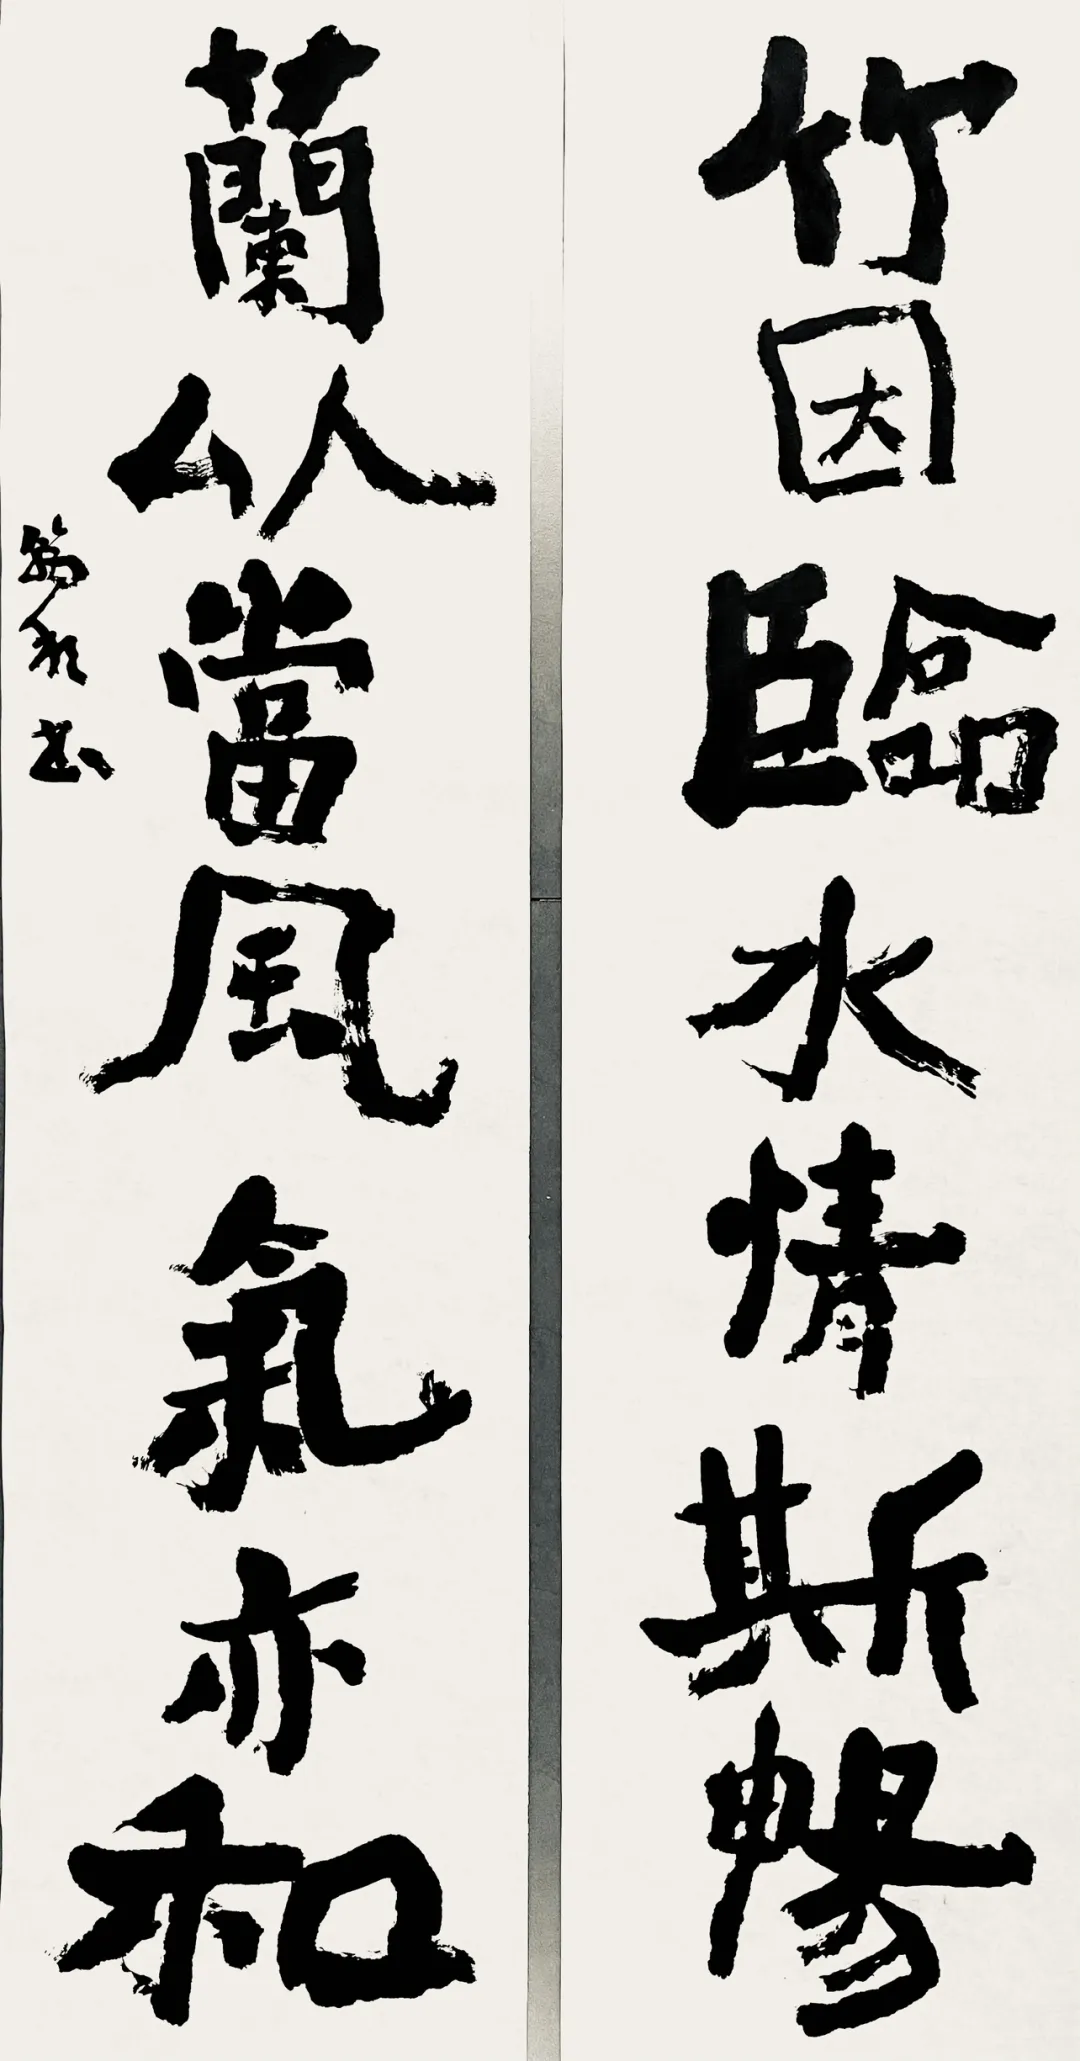 竹因臨水情斯暢
蘭以當風氣亦和